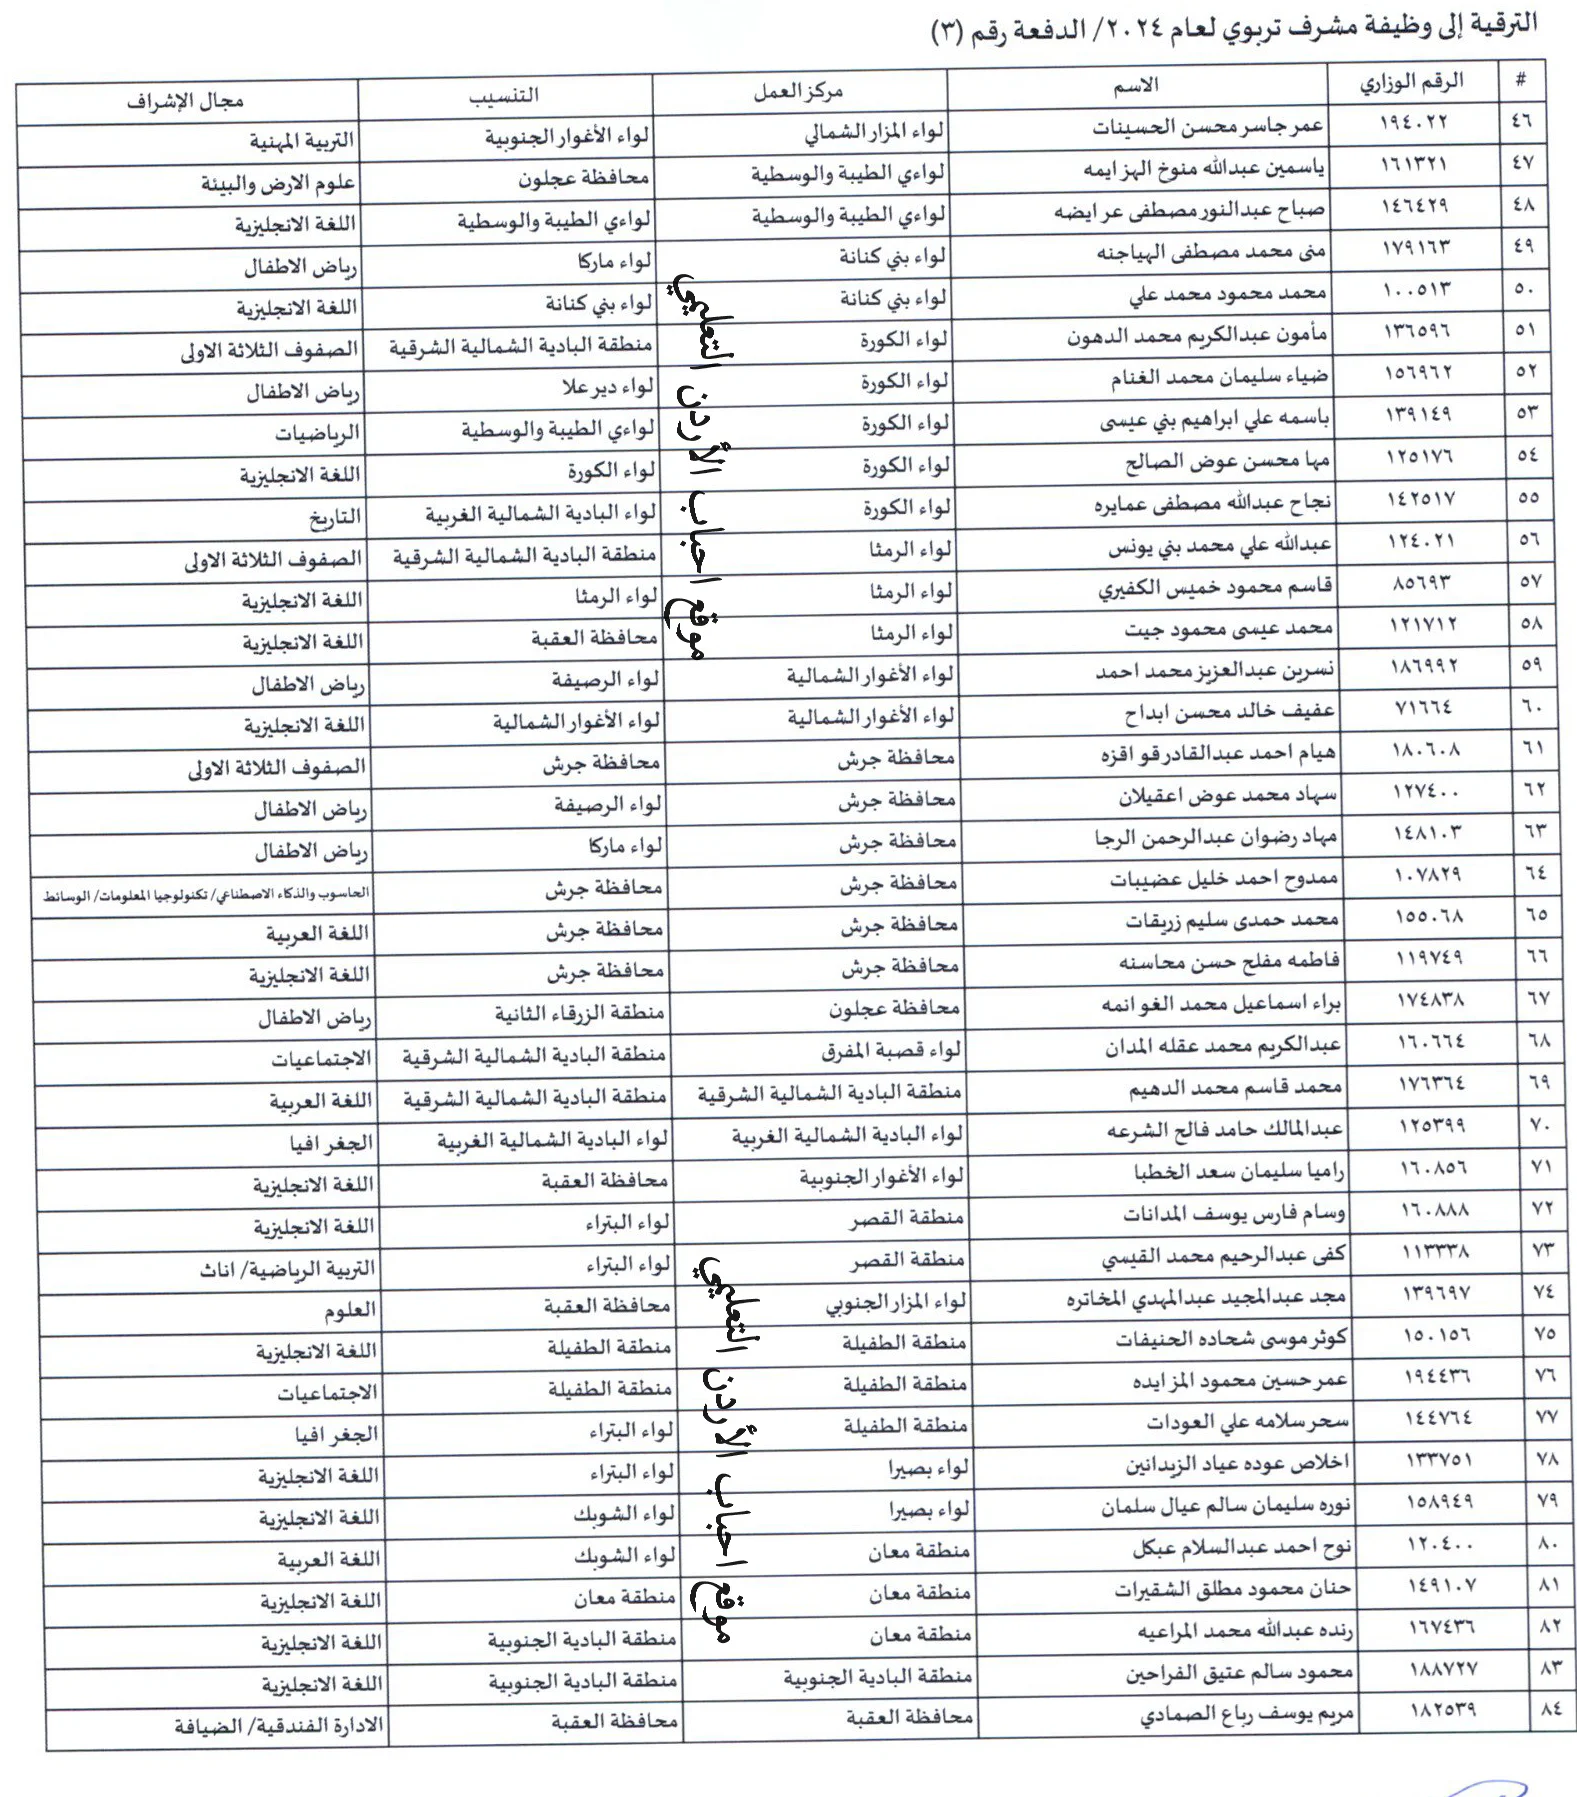 الترقية إلى وظيفة مشرف تربوي لعام ٢٠٢٤/ الدفعة رقم (٣)
# الرقم الوزاري الاسم مركز العمل التنسيب مجال الإشراف
٤٦ ١٩٤٠٢٢ عمر جاسر محسن الحسينات لواء المزار الشمالي لواء الأغوار الجنوبية التربية المهنية
٤٧ ١٦١٣٢١ ياسمين عبدالله منوخ الهزايمه لواءي الطيبة والوسطية محافظة عجلون علوم الارض والبيئة
٤٨ ١٤٦٤٢٩ صباح عبدالنور مصطفى عرايضه لواءي الطيبة والوسطية لواءي الطيبة والوسطية اللغة الانجليزية
٤٩ ١٧٩١٦٣ منى محمد مصطفى الهياجنه لواء بني كنانة لواء ماركا رياض الاطفال
٥٠ ١٠٠٥١٣ محمد محمود محمد علي لواء بني كنانة لواء بني كنانة اللغة الانجليزية
٥١ ١٣٦٥٩٦ مأمون عبدالكريم محمد الدهون لواء الكورة منطقة البادية الشمالية الشرقية الصفوف الثلاثة الاولى
٥٢ ١٥٦٩٦٢ ضياء سليمان محمد الغنام لواء الكورة لواء دير علا رياض الاطفال
٥٣ ١٣٩١٤٩ باسمه علي ابراهيم بني عيسى لواء الكورة لواءي الطيبة والوسطية الرياضيات
٥٤ ١٢٥١٧٦ مها محسن عوض الصالح لواء الكورة لواء الكورة اللغة الانجليزية
٥٥ ١٤٢٥١٧ نجاح عبدالله مصطفى عمايره لواء الكورة لواء البادية الشمالية الغربية التاريخ
٥٦ ١٢٤٠٢١ عبدالله علي محمد بني يونس لواء الرمثا منطقة البادية الشمالية الشرقية الصفوف الثلاثة الاولى
٥٧ ٨٥٦٩٣ قاسم محمود خميس الكفيري لواء الرمثا لواء الرمثا اللغة الانجليزية
٥٨ ١٢١٧١٢ محمد عيسى محمود جيت لواء الرمثا محافظة العقبة اللغة الانجليزية
٥٩ ١٨٦٩٩٢ نسرين عبدالعزيز محمد احمد لواء الأغوار الشمالية لواء الرصيفة رياض الاطفال
٦٠ ٧١٦٦٤ عفيف خالد محسن ابداح لواء الأغوار الشمالية لواء الأغوار الشمالية اللغة الانجليزية
٦١ ١٨٠٦٠٨ هيام احمد عبدالقادر قواقزه محافظة جرش محافظة جرش الصفوف الثلاثة الاولى
٦٢ ١٢٧٤٠٠ سهاد محمد عوض اعقيلان محافظة جرش لواء الرصيفة رياض الاطفال
٦٣ ١٤٨١٠٣ مهاد رضوان عبدالرحمن الرجا محافظة جرش لواء ماركا رياض الاطفال
٦٤ ١٠٧٨٢٩ ممدوح احمد خليل عضيبات محافظة جرش محافظة جرش الحاسوب والذكاء الاصطناعي/ تكنولوجيا المعلومات/ الوسائط
٦٥ ١٥٥٠٦٨ محمد حمدى سليم زريقات محافظة جرش محافظة جرش اللغة العربية
٦٦ ١١٩٧٤٩ فاطمه مفلح حسن محاسنه محافظة جرش محافظة جرش اللغة الانجليزية
٦٧ ١٧٤٨٣٨ براء اسماعيل محمد الغوانمه محافظة عجلون منطقة الزرقاء الثانية رياض الاطفال
٦٨ ١٦٠٦٦٤ عبدالكريم محمد عقله المدان لواء قصبة المفرق منطقة البادية الشمالية الشرقية الاجتماعيات
٦٩ ١٧٦٣٦٤ محمد قاسم محمد الدهيم منطقة البادية الشمالية الشرقية منطقة البادية الشمالية الشرقية اللغة العربية
٧٠ ١٢٥٣٩٩ عبدالمالك حامد فالح الشرعه لواء البادية الشمالية الغربية لواء البادية الشمالية الغربية الجغرافيا
٧١ ١٦٠٨٥٦ راميا سليمان سعد الخطبا لواء الأغوار الجنوبية محافظة العقبة اللغة الانجليزية
٧٢ ١٦٠٨٨٨ وسام فارس يوسف المدانات منطقة القصر لواء البتراء اللغة الانجليزية
٧٣ ١١٣٣٣٨ كفى عبدالرحيم محمد القيسي منطقة القصر لواء البتراء التربية الرياضية/ اناث
٧٤ ١٣٩٦٩٧ مجد عبدالمجيد عبدالمهدي المخاتره لواء المزار الجنوبي محافظة العقبة العلوم
٧٥ ١٥٠١٥٦ كوثر موسى شحاده الحنيفات منطقة الطفيلة منطقة الطفيلة اللغة الانجليزية
٧٦ ١٩٤٤٣٦ عمر حسين محمود المزايده منطقة الطفيلة منطقة الطفيلة الاجتماعيات
٧٧ ١٤٤٧٦٤ سحر سلامه علي العودات منطقة الطفيلة لواء البتراء الجغرافيا
٧٨ ١٣٣٧٥١ اخلاص عوده عياد الزبدانين لواء بصيرا لواء البتراء اللغة الانجليزية
٧٩ ١٥٨٩٤٩ نوره سليمان سالم عيال سلمان لواء بصيرا لواء الشوبك اللغة الانجليزية
٨٠ ١٢٠٤٠٠ نوح احمد عبدالسلام عبكل منطقة معان لواء الشوبك اللغة العربية
٨١ ١٤٩١٠٧ حنان محمود مطلق الشقيرات منطقة معان منطقة معان اللغة الانجليزية
٨٢ ١٦٧٤٣٦ رنده عبدالله محمد المراعيه منطقة معان منطقة البادية الجنوبية اللغة الانجليزية
٨٣ ١٨٨٧٢٧ محمود سالم عتيق الفراحين منطقة البادية الجنوبية منطقة البادية الجنوبية اللغة الانجليزية
٨٤ ١٨٢٥٣٩ مريم يوسف رباع الصمادي محافظة العقبة محافظة العقبة الادارة الفندقية/ الضيافة
موقع احباب الأردن التعليمي
موقع احباب الأردن التعليمي